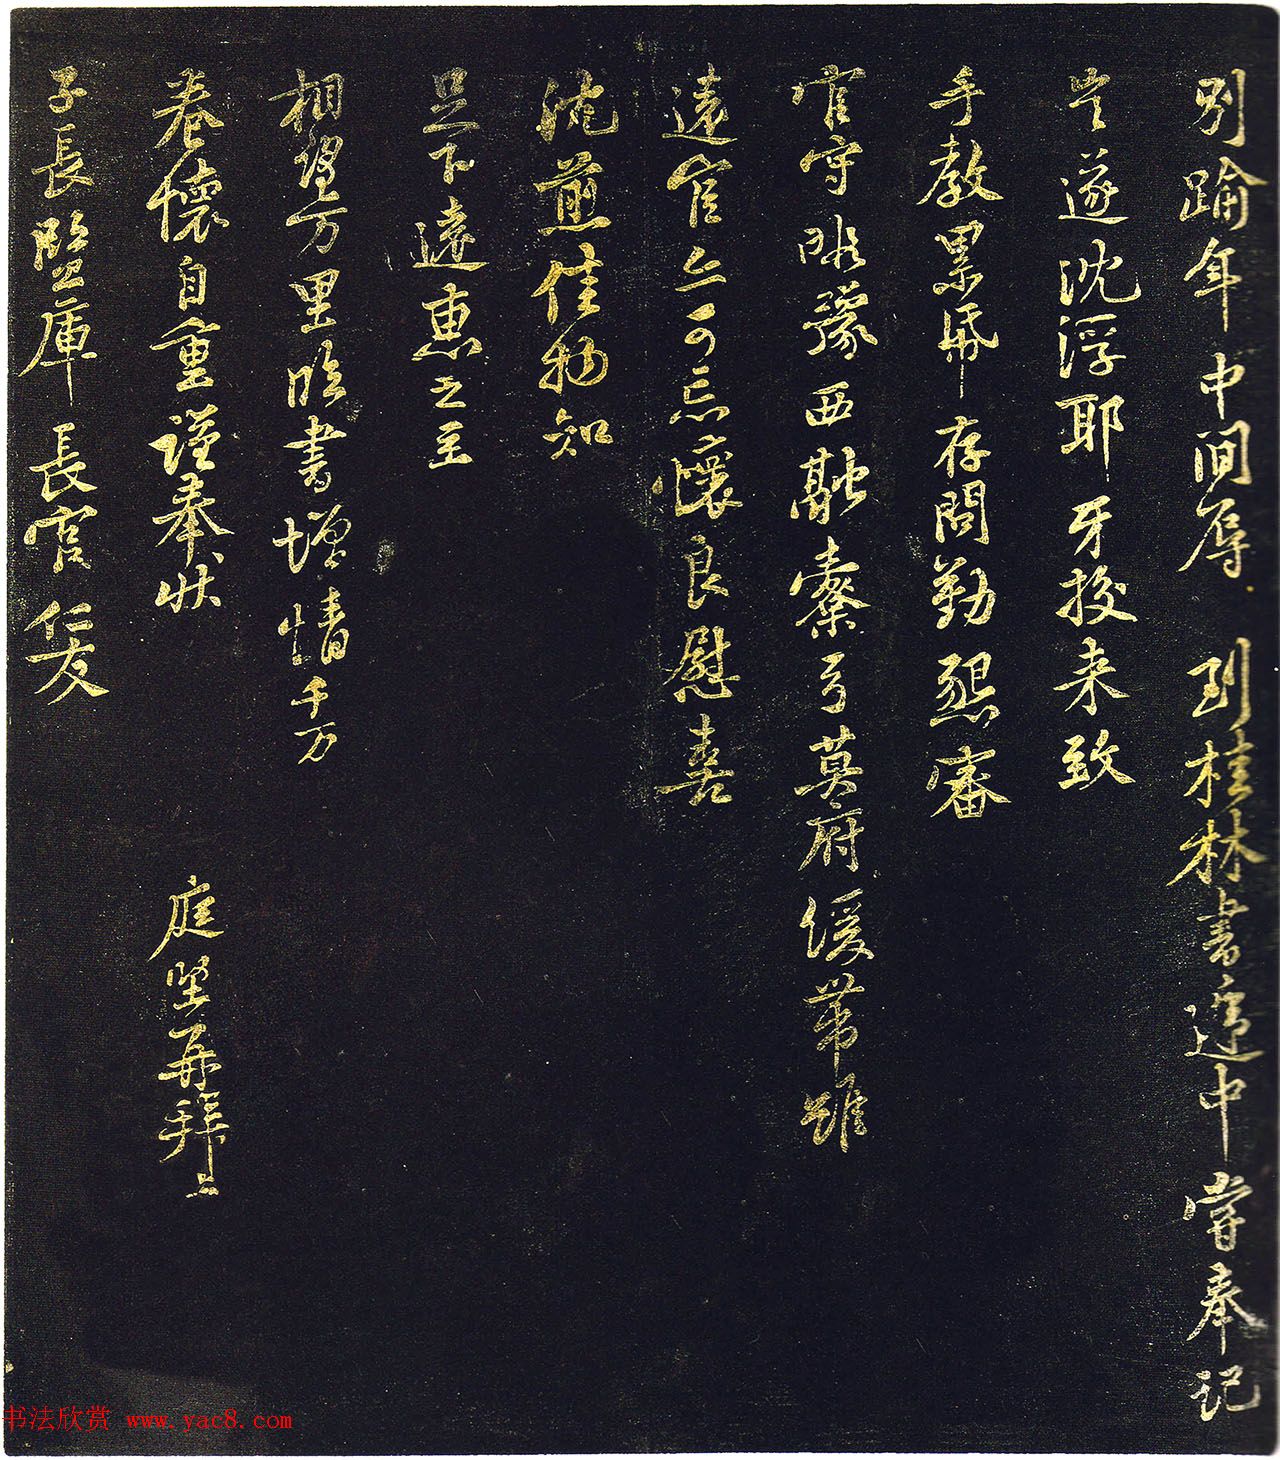 别踰年中间辱到桂林書遞中嘗奉记
岂遂沈浮耶牙挍来致
手教累帋存問勤懇審
官守暇豫西融橐弓莫府缓带雖
遠官亦可忘懷良慰喜
沈煎佳物知
足下遠惠之至
相望万里临書增情千万
卷懷自重謹奉状
庭堅再拜上
子長監庫長官仁友
书法欣赏 www.yac8.com